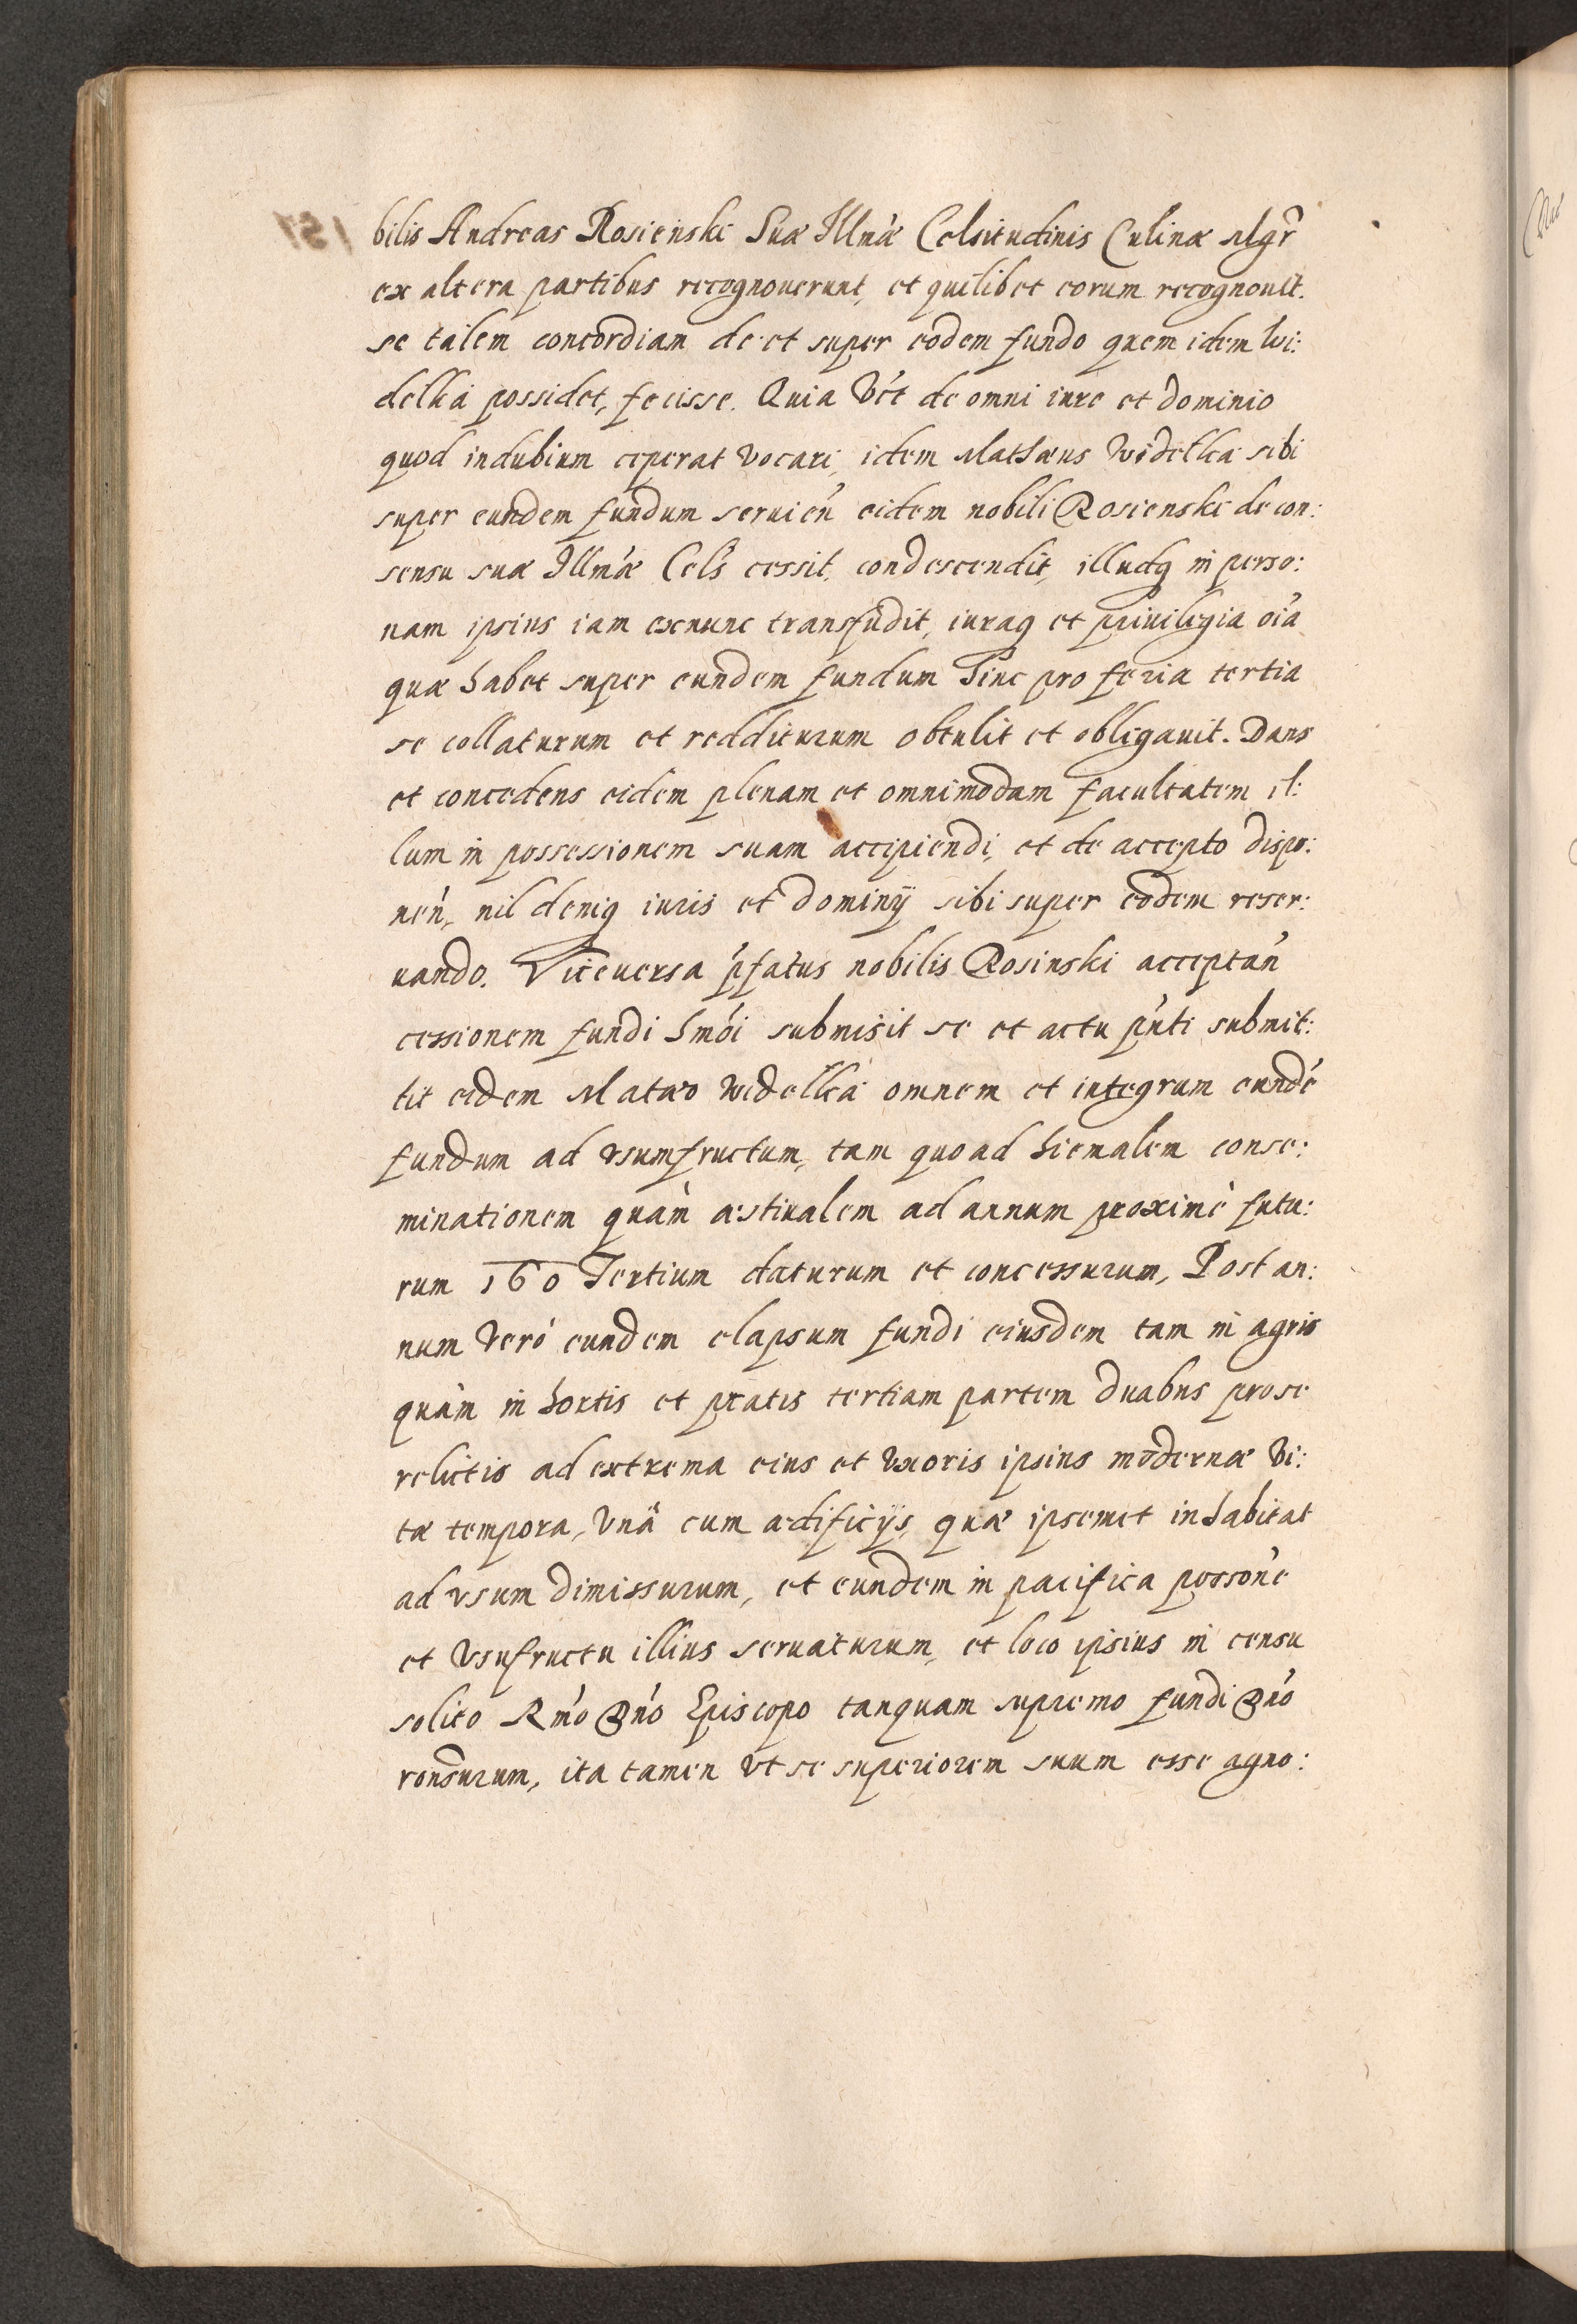 bilis Andreas Rosienski Suæ Illmæ Celsitudinis Culinæ Mgr
ex altera partibus recognouerunt, et quilibet eorum recognouit.
se talem concordiam de et super eodem fundo quem idem Wi:
delka possidet, fecisse. Quia Vèt de omni iure et dominio
quod indubium ceperat vocari, idem Mathæus Widelka sibi
super eundem fundum seruień eidem nobili Rosienski de con:
sensu suæ Illmæ Cels cessit, condescendit, illudq in perso:
nam ipsius iam exnunc transfudit, iuraq et priuilegia oia
quæ habet super eundem fundum hinc pro feria tertia
se collaturum et redditurum obtulit et obligauit. Dans
et concedens eidem plenam et omnimodam facultatem il:
lum in possessionem suam accipiendi, et de accepto dispo:
neń, nil deniq iuris et dominij sibi super eodem reser:
uando. Viceuersa pfatus nobilis Rosinski acceptań
cessionem fundi hmói submisit se et actu pńti submit:
tit eidem Matæo Widelka omnem et integrum eundé
fundum ad vsumfructum, tam quoad hiemalem conse:
minationem quàm æstiualem ad annum proximè futu:
rum 160 Tertium daturum et concessurum, Post an:
num verò eundem elapsum fundi eiusdem tam in agris
quàm in hortis et pratis tertiam partem duabus pro se
relictis ad extrema eius et vxoris ipsius modernæ vi:
tæ tempora, vnà cum ædificijs, quæ ipsemet inhabitat
ad vsum dimissurum, et eundem in pacifica possoné
et vsufructu illius seruaturum, et loco ipsius in censu
solito Rmó Dnó Episcopo tanquam supremo fundi Dnó
ronsurum, ita tamen vt se superiorem suum esse agno: